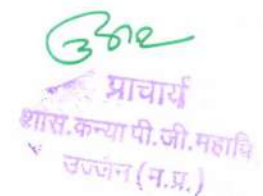 प्राचार्य
शास.कन्या पी.जी.महावि
उज्जैन (म.प्र.)